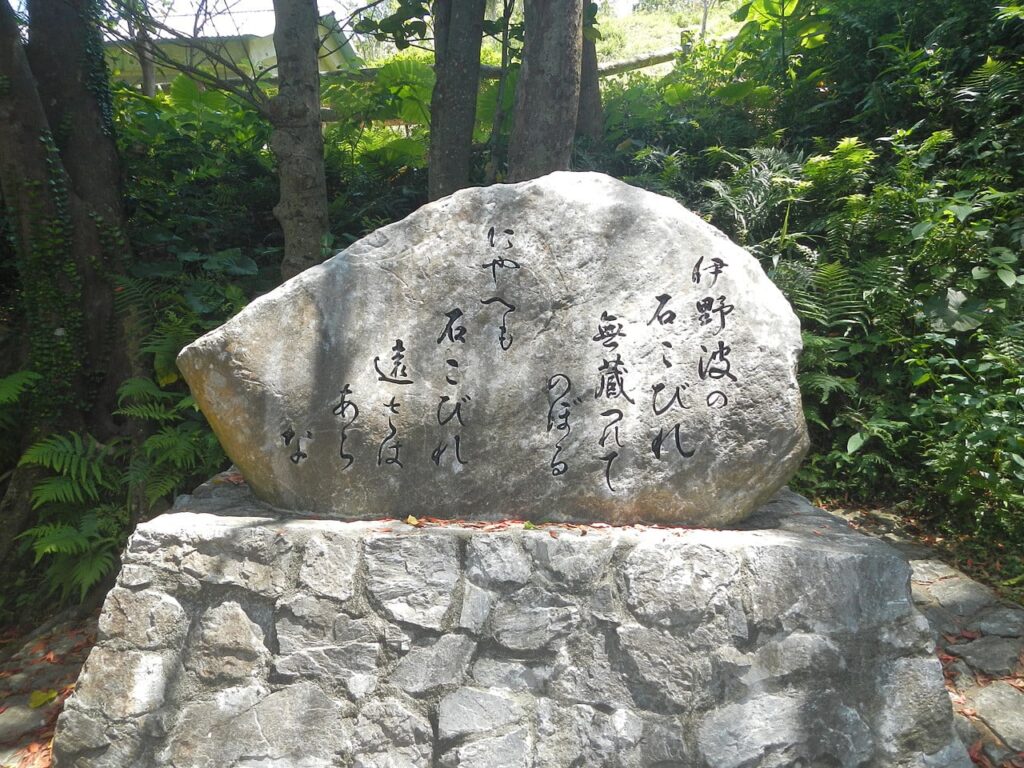 伊野波の
石こびれ
無蔵つれて
のぼる
にやへも
石こびれ
遠さは
あら
な